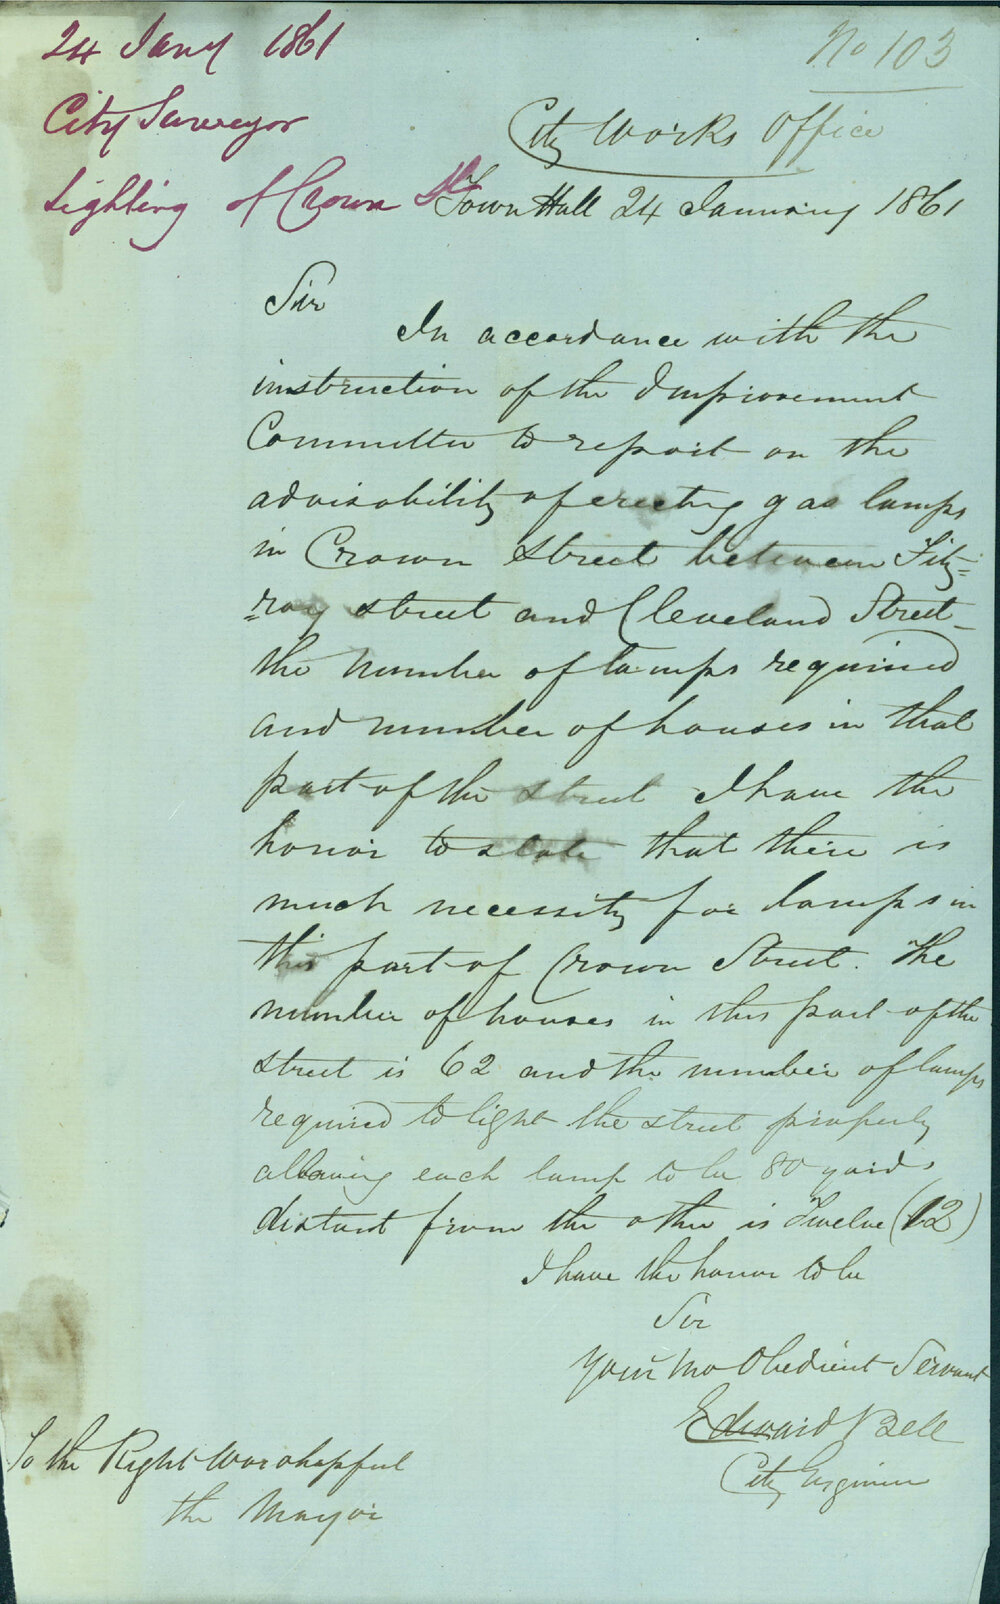 24 Jany 1861
No 103
City Surveyor
City Works Office
Lighting of Crown St
Town Hall 24 January 1861
Sir
In accordance with the
instruction of the Improvement
Committee to report on the
advisability of erecting gas lamps
in Crown Street between Fitz=
=roy street and Cleveland Street
the number of lamps required
and number of houses in that
part of the street I have the
honor to state that there is
much necessity for lamps in
this part of Crown Street. The
number of houses in this part of the
street is 62 and the number of lamps
required to light the street properly
allowing each lamp to be 80 yards
distant from the other is Twelve (12)
I have the honor to be
Sir
Your Mo Obedient Servant
Edward Bell
City Engineer
To the Right Worshipful
the Mayor